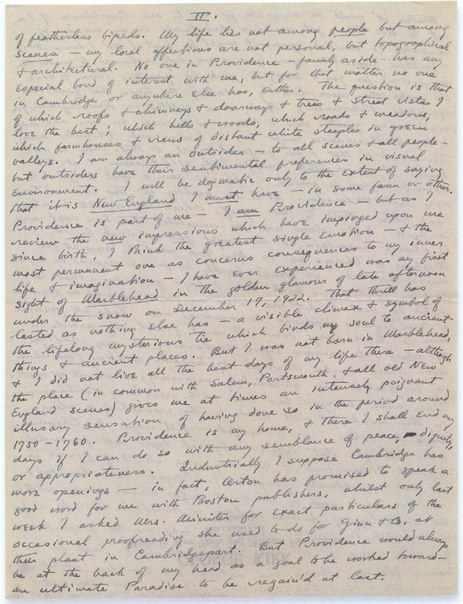 II.
of featherless bipeds. My life lies not among people but among
scenes — my local affections are not personal, but topographical
& architectural. No one in Providence — family aside — has any
especial bond of interest with me, but for that matter no one
in Cambridge or anywhere else has, either. The question is that
of which roofs & chimneys & doorways & trees & street vistas I
love the best; which hills & woods, which roads & meadows,
which farmhouses & views of distant white steeples in green
valleys. I am always an outsider — to all scenes & all people —
but outsiders have their sentimental preferences in visual
environment. I will be dogmatic only to the extent of saying
that it is New England I must have — in some form or other.
Providence is part of me — I am Providence — but as I
review the new impressions which have impinged upon me
since birth, I think the greatest single emotion — & the
most permanent one as concerns consequences to my inner
life & imagination — I have ever experienced was my first
sight of Marblehead in the golden glamour of late afternoon
under the snow on December 17, 1922. That thrill has
lasted as nothing else has — a visible climax & symbol of
the lifelong mysterious tie which binds my soul to ancient
things & ancient places. But I was not born in Marblehead,
& I did not live all the best days of my life there — although
the place (in common with Salem, Portsmouth, & all old New
England scenes) gives me at times an intensely poignant
illusory sensation of having done so in the period around
1750-1760. Providence is my home, & there I shall end my
days if I can do so with any semblance of peace, dignity,
or appropriateness. Industrially I suppose Cambridge has
more openings — in fact, Orton has promised to speak a
good word for me with Boston publishers, whilst only last
week I asked Mrs. Miniter for exact particulars of the
occasional proofreading she used to do for Ginn & Co. at
their plant in Cambridgeport. But Providence would always
be at the back of my head as a goal to be worked toward —
an ultimate Paradise to be regain'd at last.